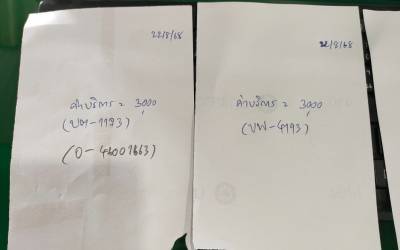 22/8/68
ค่าบริการ = 3,000
(บต-1193)
(0-46001663)
22/8/68
ค่าบริการ = 3,000
(บพ-4193)